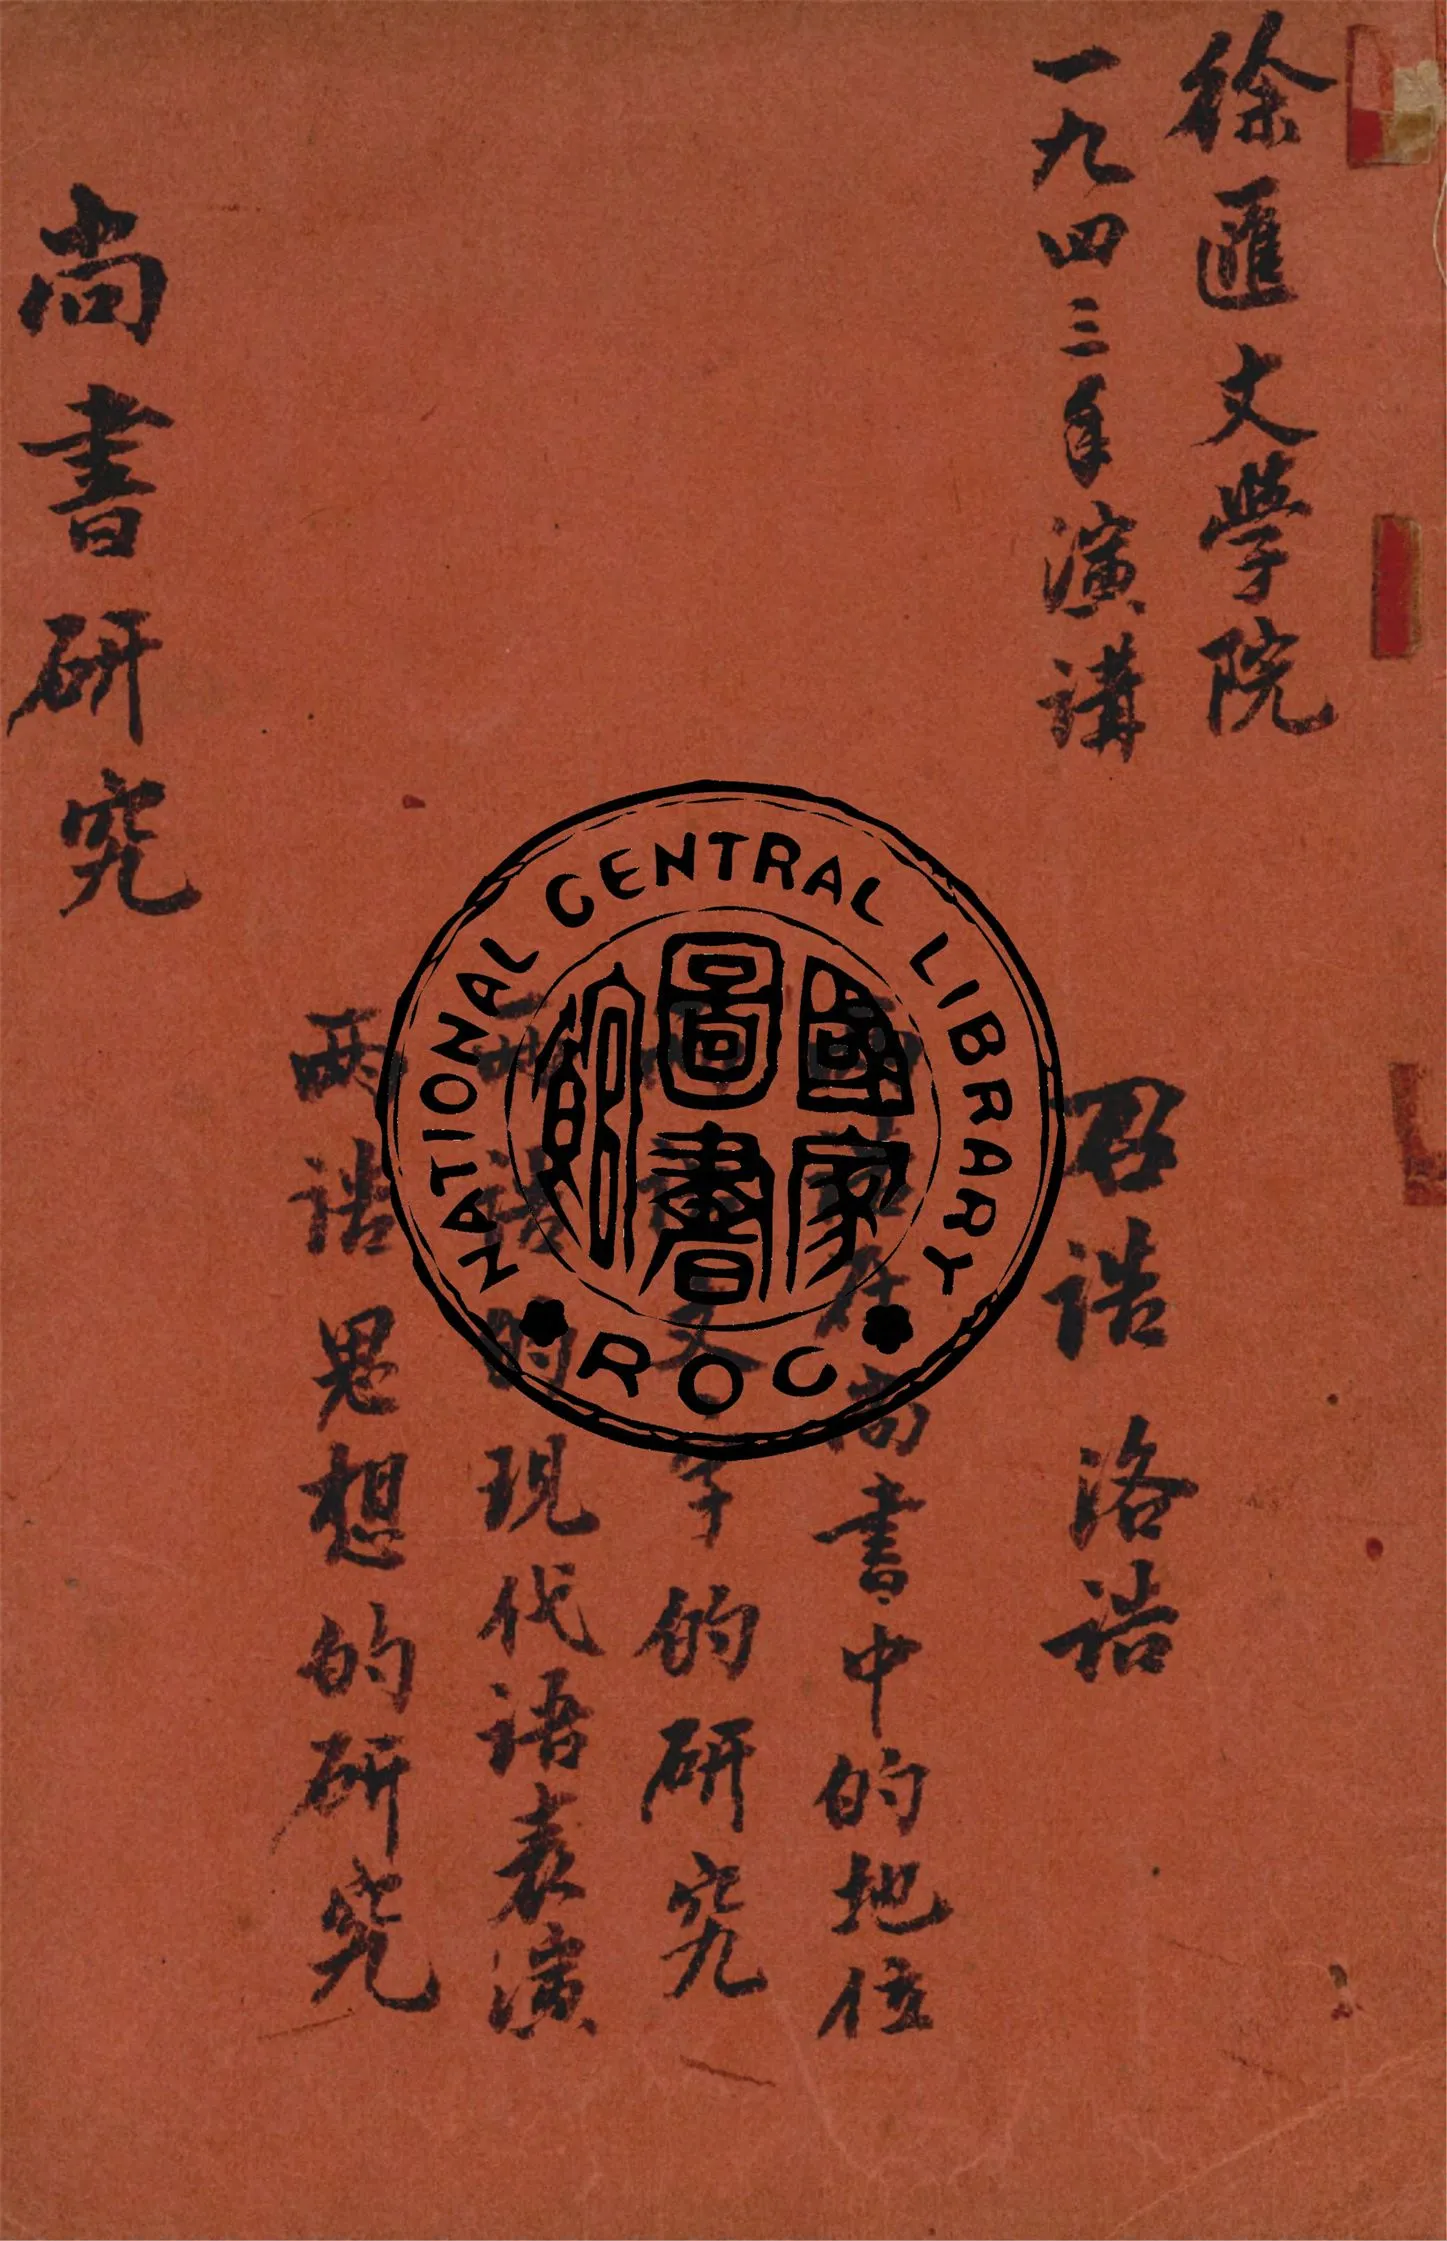 徐匯文學院
一九四三年演講
召誥 洛誥
兩誥在尚書中的地位
兩誥文字的研究
兩誥的現代語表演
兩誥思想的研究
尚書研究
NATIONAL CENTRAL LIBRARY
ROC
國家圖書館